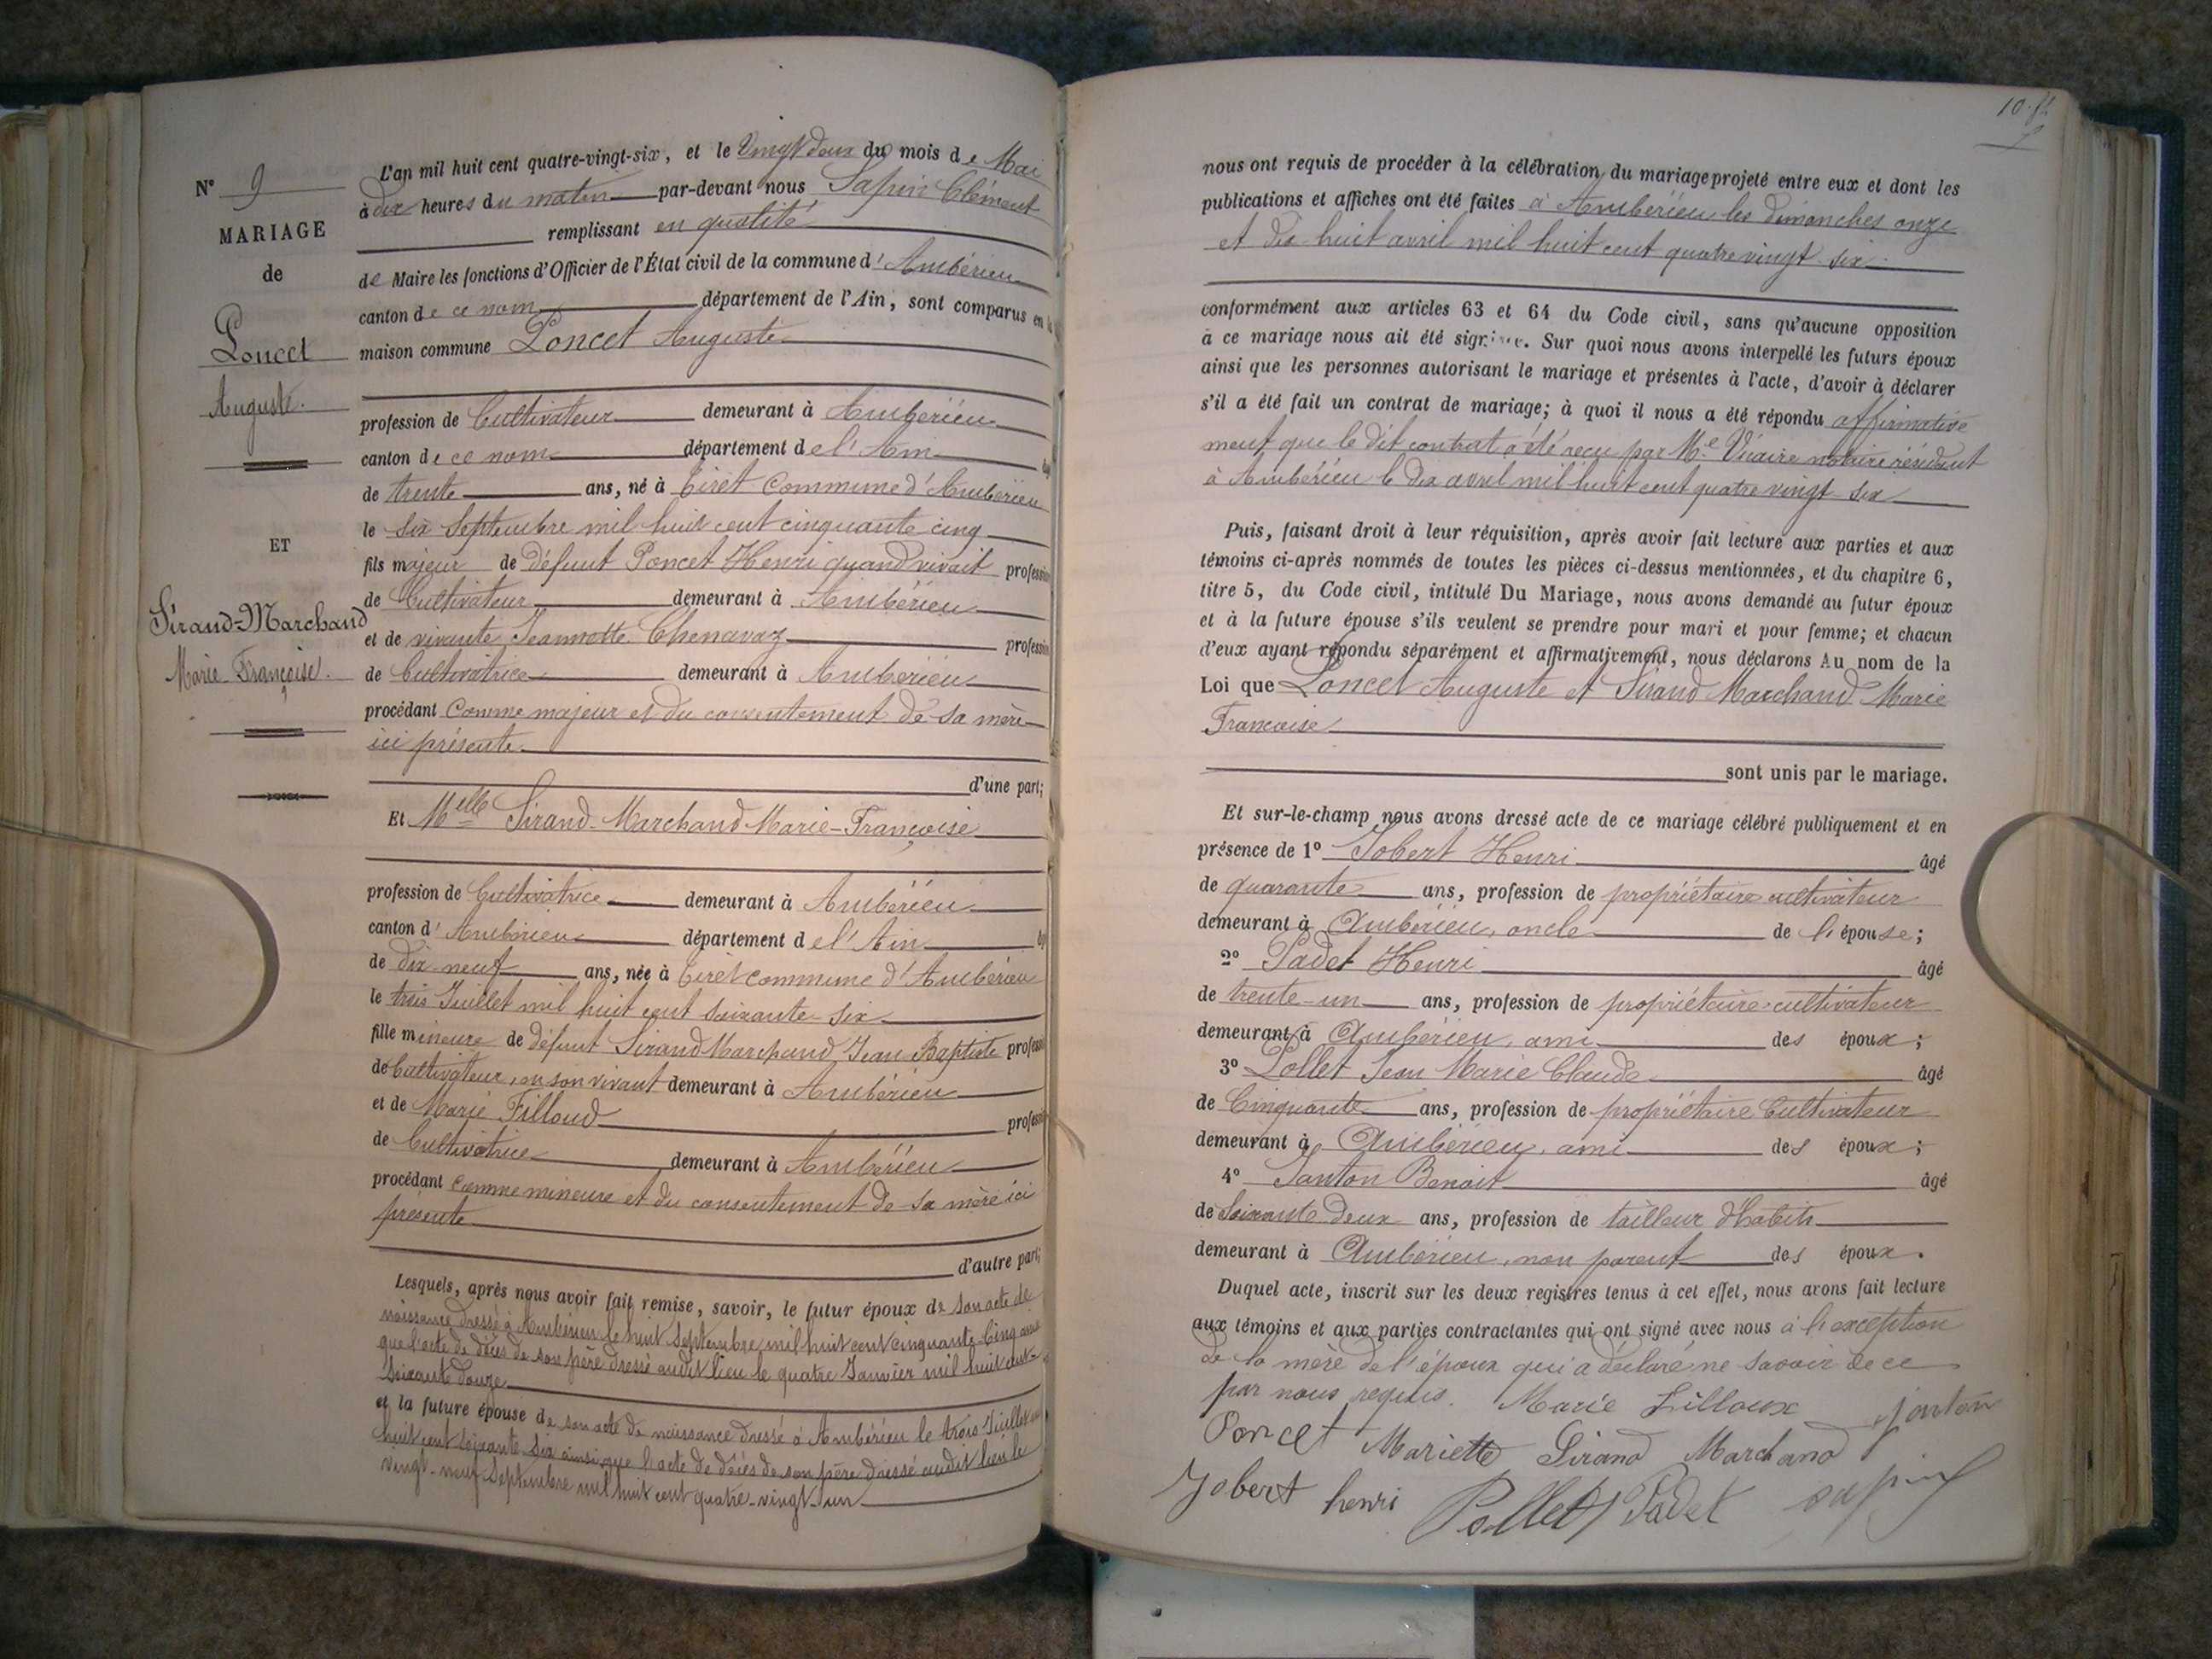 N° 9
MARIAGE
de
Poncet
Auguste.
ET
Sirand-Marchand
Marie-Françoise.
L'an mil huit cent quatre-vingt-six, et le Vingt deux du mois de Mai
à dix heures du matin par-devant nous Sapin Clément
remplissant en qualité
de Maire les fonctions d'Officier de l'État civil de la commune d'Ambérieu
canton de ce nom département de l'Ain, sont comparus en la
maison commune Poncet Auguste
profession de Cultivateur demeurant à Ambérieu
canton de ce nom département de l'Ain
de trente ans, né à Tiret commune d'Ambérieu
le six Septembre mil huit cent cinquante-cinq
fils majeur de défunt Poncet Henri quand vivait profession
de Cultivateur demeurant à Ambérieu
et de vivante Jeannette Chenavaz profession
de Cultivatrice demeurant à Ambérieu
procédant comme majeur et du consentement de sa mère
ici présente
d'une part;
Et Melle Sirand-Marchand Marie-Françoise
profession de Cultivatrice demeurant à Ambérieu
canton d'Ambérieu département de l'Ain
de dix-neuf ans, née à Tiret commune d'Ambérieu
le trois Juillet mil huit cent soixante-six
fille mineure de défunt Sirand Marchand Jean Baptiste profession
de Cultivateur, en son vivant demeurant à Ambérieu
et de Marie Filloud profession
de Cultivatrice demeurant à Ambérieu
procédant comme mineure et du consentement de sa mère ici
présente
d'autre part;
Lesquels, après nous avoir fait remise, savoir, le futur époux de son acte de
naissance dressé à Ambérieu le huit Septembre mil huit cent cinquante-cinq ainsi
que l'acte de décès de son père dressé audit lieu le quatre Janvier mil huit cent
soixante douze
et la future épouse de son acte de naissance dressé à Ambérieu le trois Juillet mil
huit cent soixante-six ainsi que l'acte de décès de son père dressé audit lieu le
vingt-neuf Septembre mil huit cent quatre-vingt-un
10.
nous ont requis de procéder à la célébration du mariage projeté entre eux et dont les
publications et affiches ont été faites à Ambérieu les dimanches onze
et dix huit avril mil huit cent quatre vingt-six
conformément aux articles 63 et 64 du Code civil, sans qu'aucune opposition
à ce mariage nous ait été signifiée. Sur quoi nous avons interpellé les futurs époux
ainsi que les personnes autorisant le mariage et présentes à l'acte, d'avoir à déclarer
s'il a été fait un contrat de mariage; à quoi il nous a été répondu affirmative
ment que le dit contrat a été reçu par Me Vicaire notaire résidant
à Ambérieu le dix avril mil huit cent quatre vingt-six
Puis, faisant droit à leur réquisition, après avoir fait lecture aux parties et aux
témoins ci-après nommés de toutes les pièces ci-dessus mentionnées, et du chapitre 6,
titre 5, du Code civil, intitulé Du Mariage, nous avons demandé au futur époux
et à la future épouse s'ils veulent se prendre pour mari et pour femme; et chacun
d'eux ayant répondu séparément et affirmativement, nous déclarons Au nom de la
Loi que Poncet Auguste et Sirand Marchand Marie
Françoise
sont unis par le mariage.
Et sur-le-champ nous avons dressé acte de ce mariage célébré publiquement et en
présence de 1° Jobert Henri âgé
de quarante ans, profession de propriétaire cultivateur
demeurant à Ambérieu, oncle de l'épouse;
2° Padet Henri âgé
de trente-un ans, profession de propriétaire-cultivateur
demeurant à Ambérieu, ami des époux;
3° Pollet Jean Marie Claude âgé
de Cinquante ans, profession de propriétaire Cultivateur
demeurant à Ambérieu, ami des époux;
4° Janton Benoit âgé
de Soixante deux ans, profession de tailleur d'habits
demeurant à Ambérieu, non parent des époux.
Duquel acte, inscrit sur les deux registres tenus à cet effet, nous avons fait lecture
aux témoins et aux parties contractantes qui ont signé avec nous à l'exception
de la mère de l'époux qui a déclaré ne savoir de ce
par nous requis. Marie Filloux Janton
Poncet Mariette Sirand Marchand
Jobert henri Pollet Padet Sapin